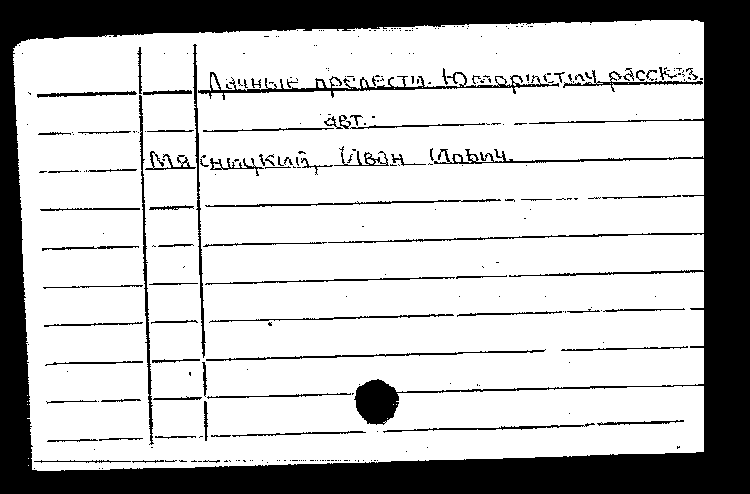 Дачные прелести. Юмористич. рассказ.
авт.:
Мясницкий, Иван Ильич.